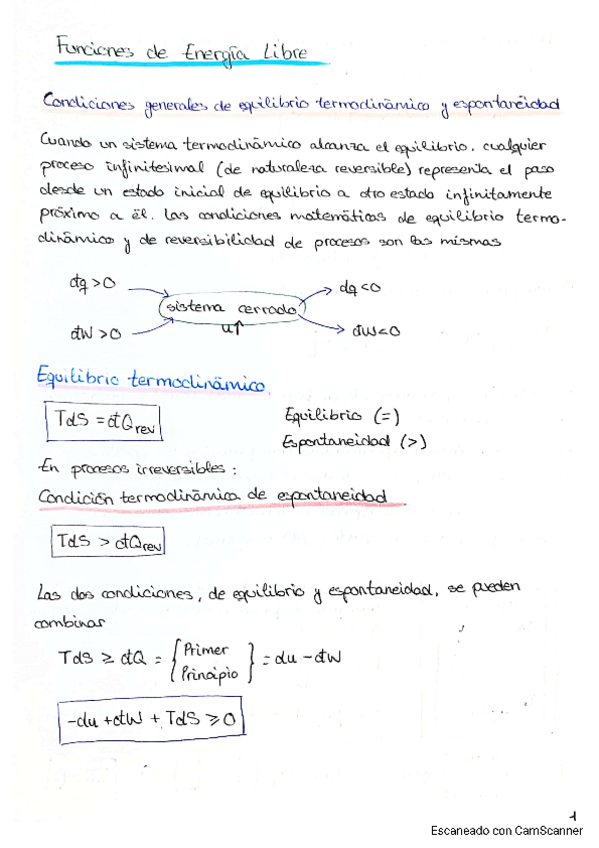 Funciones de Energía Libre
Condiciones generales de equilibrio termodinámico y espontaneidad
Cuando un sistema termodinámico alcanza el equilibrio. cualquier
proceso infinitesimal (de naturaleza reversible) representa el paso
desde un estado inicial de equilibrio a otro estado infinitamente
próximo a él. Las condiciones matemáticas de equilibrio termo-
dinámico y de reversibilidad de procesos son las mismas
đq >0
đq <0
sistema cerrado
u↑
đW >0
đW<0
Equilibrio termodinámico
TdS = đQrev
Equilibrio (=)
Espontaneidad (>)
En procesos irreversibles:
Condición termodinámica de espontaneidad
TdS > đQrev
Las dos condiciones, de equilibrio y espontaneidad, se pueden
combinar
TdS ≥ đQ = { Primer Principio } = du - đW
-du + đW + TdS ≥ 0
1
Escaneado con CamScanner